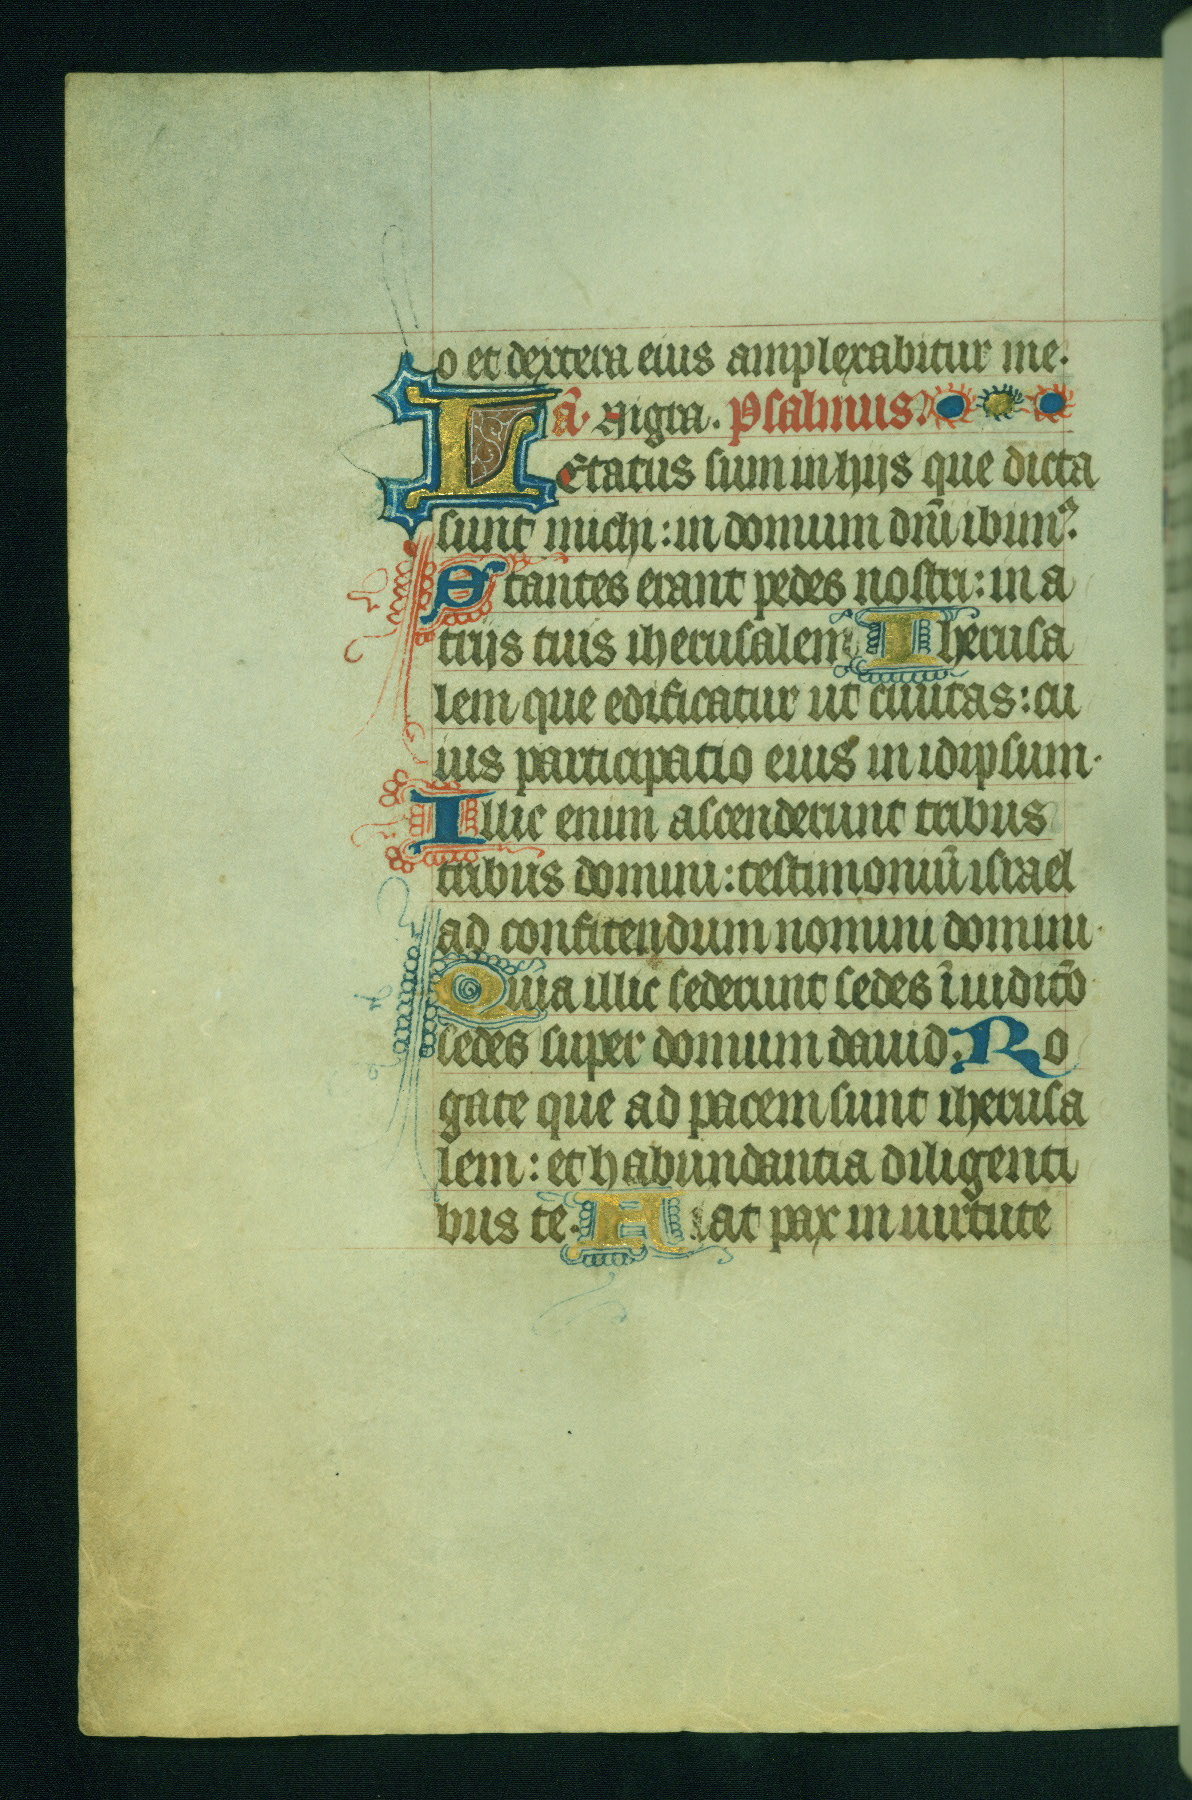 o et dextera eius amplexabitur me.
ā. Nigra. Psalmus.
Letatus sum in hijs que dicta
sunt michi: in domum dn̄i ibim⁹.
Stantes erant pedes nostri: in a
trijs tuis iherusalem Iherusa
lem que edificatur ut ciuitas: cu
ius participatio eius in idipsum.
Illic enim ascenderunt tribus
tribus domini: testimoniū israel
ad confitendum nomini domini.
Quia illic sederunt sedes ī iudicio
sedes super domum dauid. Ro
gate que ad pacem sunt iherusa
lem: et habundantia diligenti
bus te. Fiat pax in uirtute